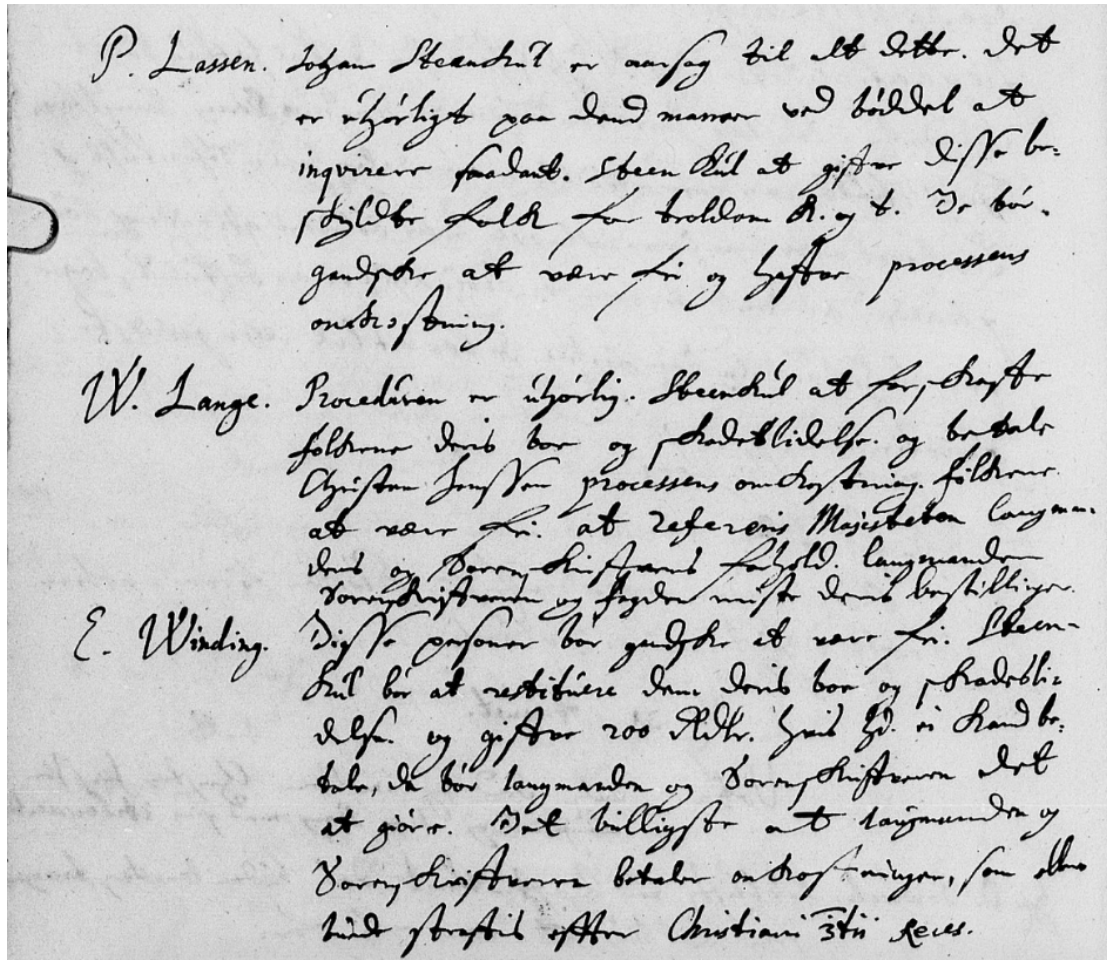 P. Lassen. Johan Steenkul er aarsag til alt dette. det
er uhørligt paa dend maneer ved bøddel at
inqvirere saadant. Steen Kul at gifve disse be-
skyldte folk for troldom K. og t. De bør
gandske at være fri og hafve processens
omkostning.
W. Lange. Proceduren er uhørlig. Steenkul at forskaffe
folkene deris boe og skadeslidelse. og betale
Christen Jenssen processens omkostning. folkene
at være fri. at referere Majesteten laugman-
dens og Sorenskrifverens forhold. laugmanden
Sorenskrifveren og fogden miste deris bestillinger.
E. Winding. Disse personer bør gandske at være fri. Steen-
kul bør at restituere dem deris boe og skadesli-
delse. og gifve 200 Rdlr. hvis hd. ei kand be-
tale, da bør laugmanden og Sorenskrifveren det
at giøre. Det billigste at laugmanden og
Sorenskrifveren betaler omkostninger, som ellers
burde straffis efter Christiani 3tii Reces.